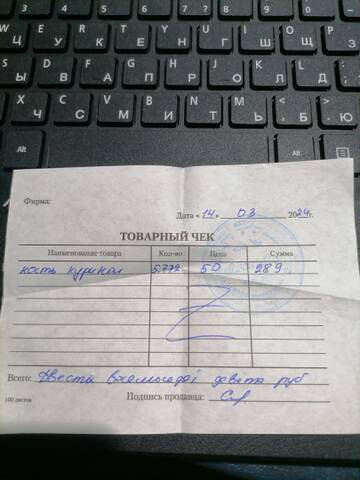 Э Р Т Y U I O P
W E
Ц У К Е Н Г Ш Щ З
S D F G H J K L
Ы В А П Р О Л Д
Z X C V B N M < >
Я Ч С М И Т Ь Б Ю
Alt Alt
Фирма:
Дата «14» 03 2024г.
ТОВАРНЫЙ ЧЕК
Наименование товара Кол-во Цена Сумма
кость куриная 5.772 50 289
Всего: Двести восемьдесят девять руб
100 листов Подпись продавца: